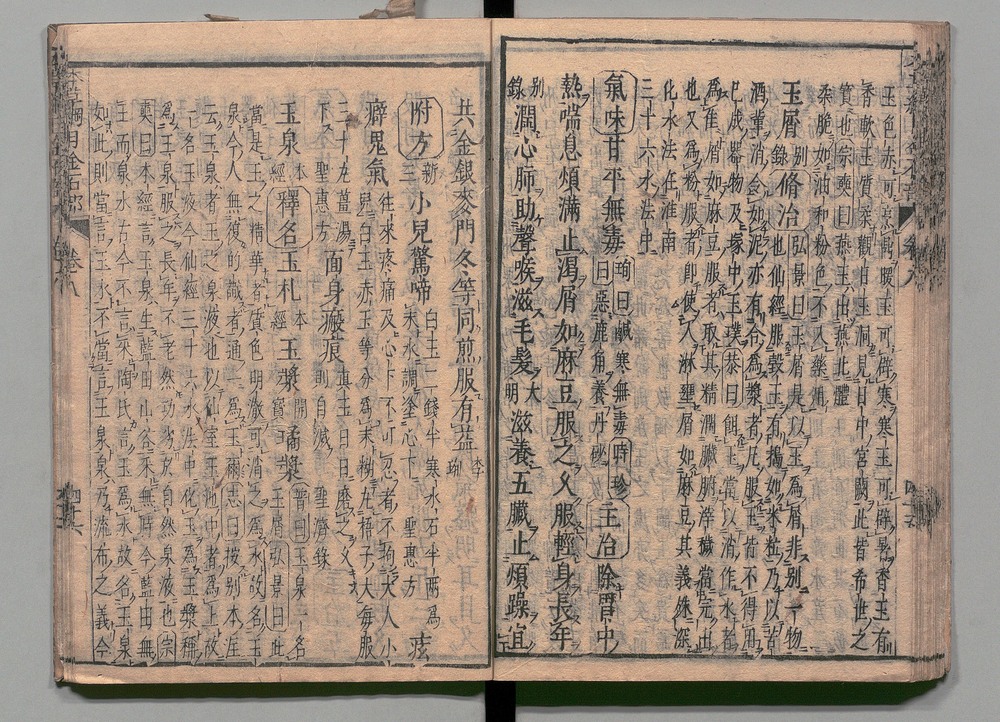 玉色赤可烹暖玉可辟寒寒玉可辟暑香玉有
香軟玉質柔觀日玉洞見日中宮闕此皆希世之
寶也宗奭曰燕玉出燕北體
柔脆如油和粉色不入藥用
玉屑錄別修治弘景曰玉屑是以玉為屑非別一物
也仙經服瑴玉有搗如米粒乃以苦
酒輩消令如泥亦有合為漿者凡服玉皆不得用
已成器物及塚中玉璞恭曰餌玉當以消作水者
為佳屑如麻豆服者取其精潤臟腑滓穢當完出
也又為粉服者即使人淋壅屑如麻豆其義殊深
化水法在淮南
三十六水法中
氣味甘平無毒珣曰鹹寒無毒時珍曰惡鹿角養丹砂主治除胃中
熱喘息煩滿止渴屑如麻豆服之久服輕身長年
別錄潤心肺助聲喉滋毛髮大明滋養五臟止煩躁宜
共金銀麥門冬等同煎服有益李珣
附方新三小兒驚啼白玉二錢半寒水石半兩為末水調塗心下聖惠方痃
癖鬼氣往來疼痛及心下不可忍者不拘大人小兒白玉赤玉等分為末糊丸梧子大每服
三十丸薑湯下聖惠方面身瘢痕真玉日日磨之久則自滅聖濟錄
玉泉本經釋名玉札本經玉漿開寶璚漿普曰玉泉一名玉屑弘景曰此
當是玉之精華者質色明澈可消之為水故名玉
泉今人無復的識者通一為玉爾志曰按別本註
云玉泉者玉之泉液也以仙室玉池中者為上故
一名玉液今仙經三十六水法中化玉為玉漿稱
為玉泉服之長年不老然功劣於自然泉液也宗
奭曰本經言玉泉生藍田山谷采無時今藍田無
玉而泉水古今不言采陶氏言玉為水故名玉泉
如此則當言玉水不當言玉泉泉乃流布之義今